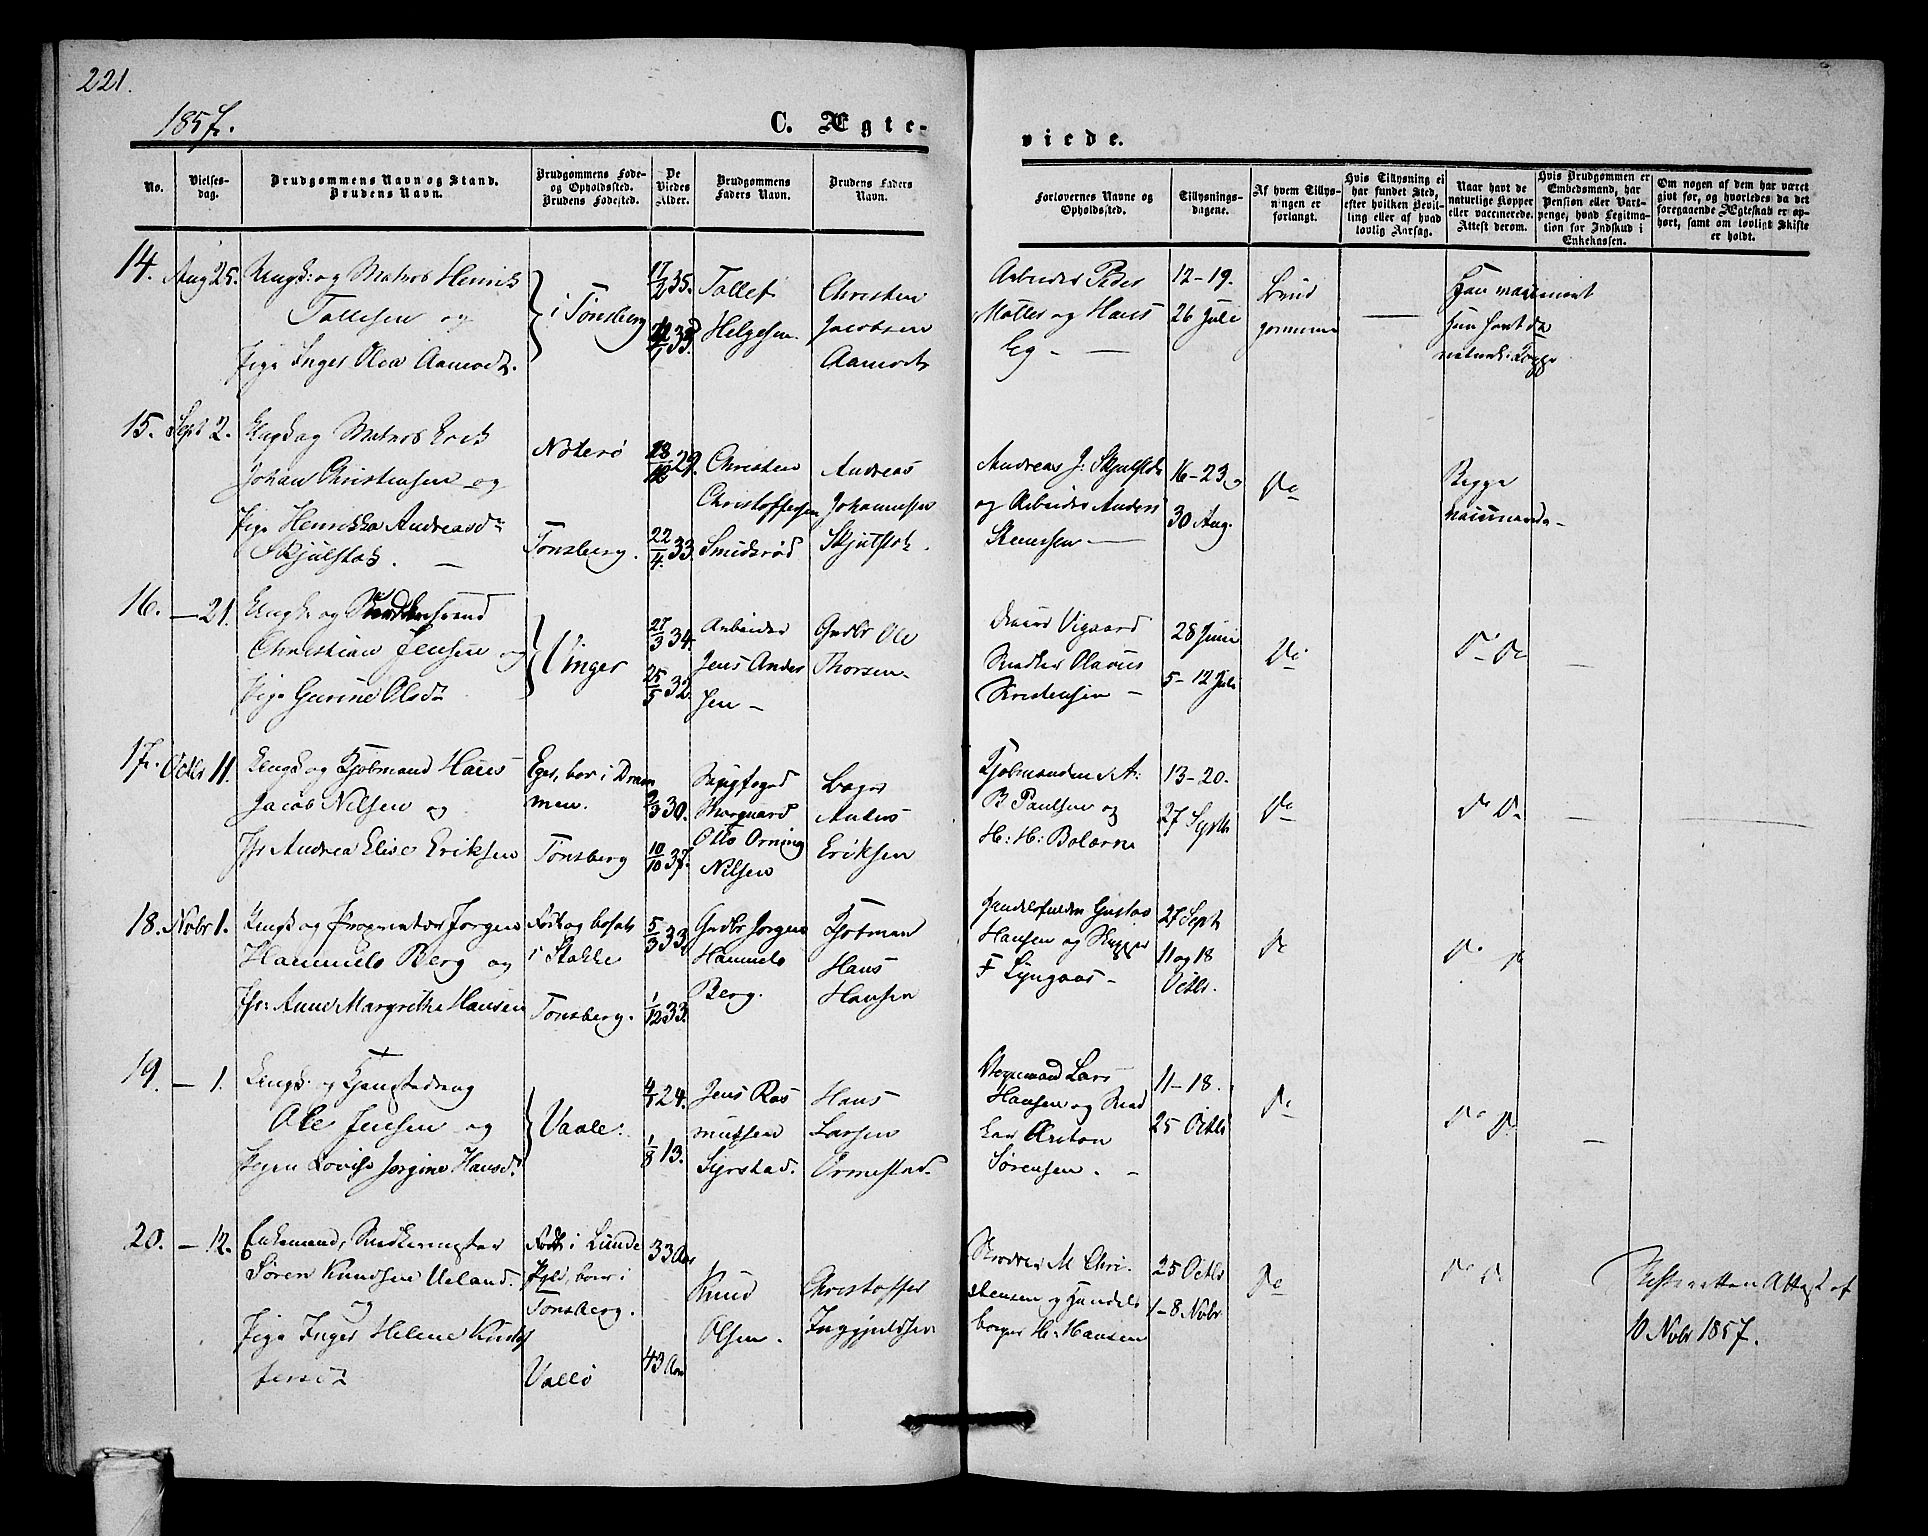 221.
1857.
C. Ægte-
viede.
No.
Vielses-
dag.
Brudgommens Navn og Stand.
Brudens Navn.
Brudgommens Føde-
og Opholdssted.
Brudens Fødested.
De
Viedes
Alder.
Brudgommens
Faders Navn.
Brudens Faders
Navn.
Forlovernes Navne og
Opholdssted.
Tillysnings-
dagene.
Af hvem Tillys-
ningen er
forlangt.
Hvis Tillysning ei
har fundet Sted,
efter hvilken Bevil-
ling eller af hvad
lovlig Aarsag.
Naar havt de
naturlige Kopper
eller vaccinerede.
Attest derom.
Hvis Brudgommen er
Embedsmand, har
Pension eller Vart-
penge, hvad Legitima-
tion for Indskud i
Enkekassen.
Om nogen af dem har været
givt før, og hvorledes da det
foregaaende Ægteskab er op-
hørt, samt om lovligt Skifte
er holdt.
14. Aug 25.
Ungk: og Matros Henrik
Tollefsen og
Pige Inger Olea Aamodt.
i Tønsberg
17/2 35.
33.
Tollef
Helgesen.
Christen
Jacobsen
Aamodt
Arbeider Peder
Møller og Hans
Eg —
12-19.
26 Juli
Brud
gommen
Han vaccineret
hun havt de
naturl: Kopper
15. Sept 2.
Ungk og Matros Erik
Johan Christensen og
Pige Henrikka Andreasdtr
Skjulstad. —
Nøterø
Tønsberg.
29.
22/4 33.
Christen
Christoffersen
Smidsrød
Andreas
Johannesen
Skjulstd.
Andreas J: Skjulstd
og Arbeider Anders
Stenersen —
16-23.
30 Aug.
Do
Begge
vaccinerede
16. — 21.
Ungk og
Christian Jensen og
Pige Gurine Olsdtr
Vinger
27/3 34.
25/5 32.
Arbeider
Jens Ander
sen —
Gudbr Ole
Thorsen
Vigaard
Snedker Olavus
Kristensen —
28 Juni
5-12 Juli
Do
Do Do
17. Octbr 11.
Ungk og Kjøbmand Hans
Jacob Nilsen og
Jfr Andrea Elise Eriksen
Eger, bor i Dram
men.
Tønsberg
9/3 30.
10/10 37.
Skipsfoged
Morguard
Otto Orning
Nilsen
Bager
Anders
Eriksen
Kjøbmændene A:
B Paulsen og
H: H: Bolærne
13-20.
27 Septbr
Do
Do Do
18. Novbr 1.
Ungk og Proprietær Jørgen
Hammels Berg og
Jfr: Anne Margrethe Hansen
Født og bosat
i Stokke
Tønsberg.
5/3 33.
1/12 33.
Gudbr Jørgen
Hammels
Berg.
Kjøbman
Hans
Hansen
Handelsfuldm Gustav
Hansen og Skipper
F Lyngaas —
27 Sept
11 og 18
Octbr.
Do
Do Do
19. — 1.
Ungk: og Tjenstedreng
Ole Jensen og
Pigen Lovise Jørgine Hansd.
Vaale.
24.
1/8 13.
Jens Ras
mussen
Syrstad.
Hans
Larsen
Ormestad.
Vognmand Lars
Hansen og Sned
ker Anton
Sørensen. —
11-18.
25 Octbr
Do
Do Do
20. — 12.
Enkemand, Snedkermester
Søren Knudsen Ueland.
og
Pige Inger Helene Christof
fersdtr
Født i Lunde
Pgld, boer i
Tønsberg.
Vallø
33 Aar
43 Aar
Knud
Olsen.
Christoffer
Ingjeldsen
Skrædder M Chri-
stensen og Handels
borger H. Hansen
25 Octbr
1-8 Novbr
Do
Do Do
Skifteretten Attest af
10 Novbr 1857.